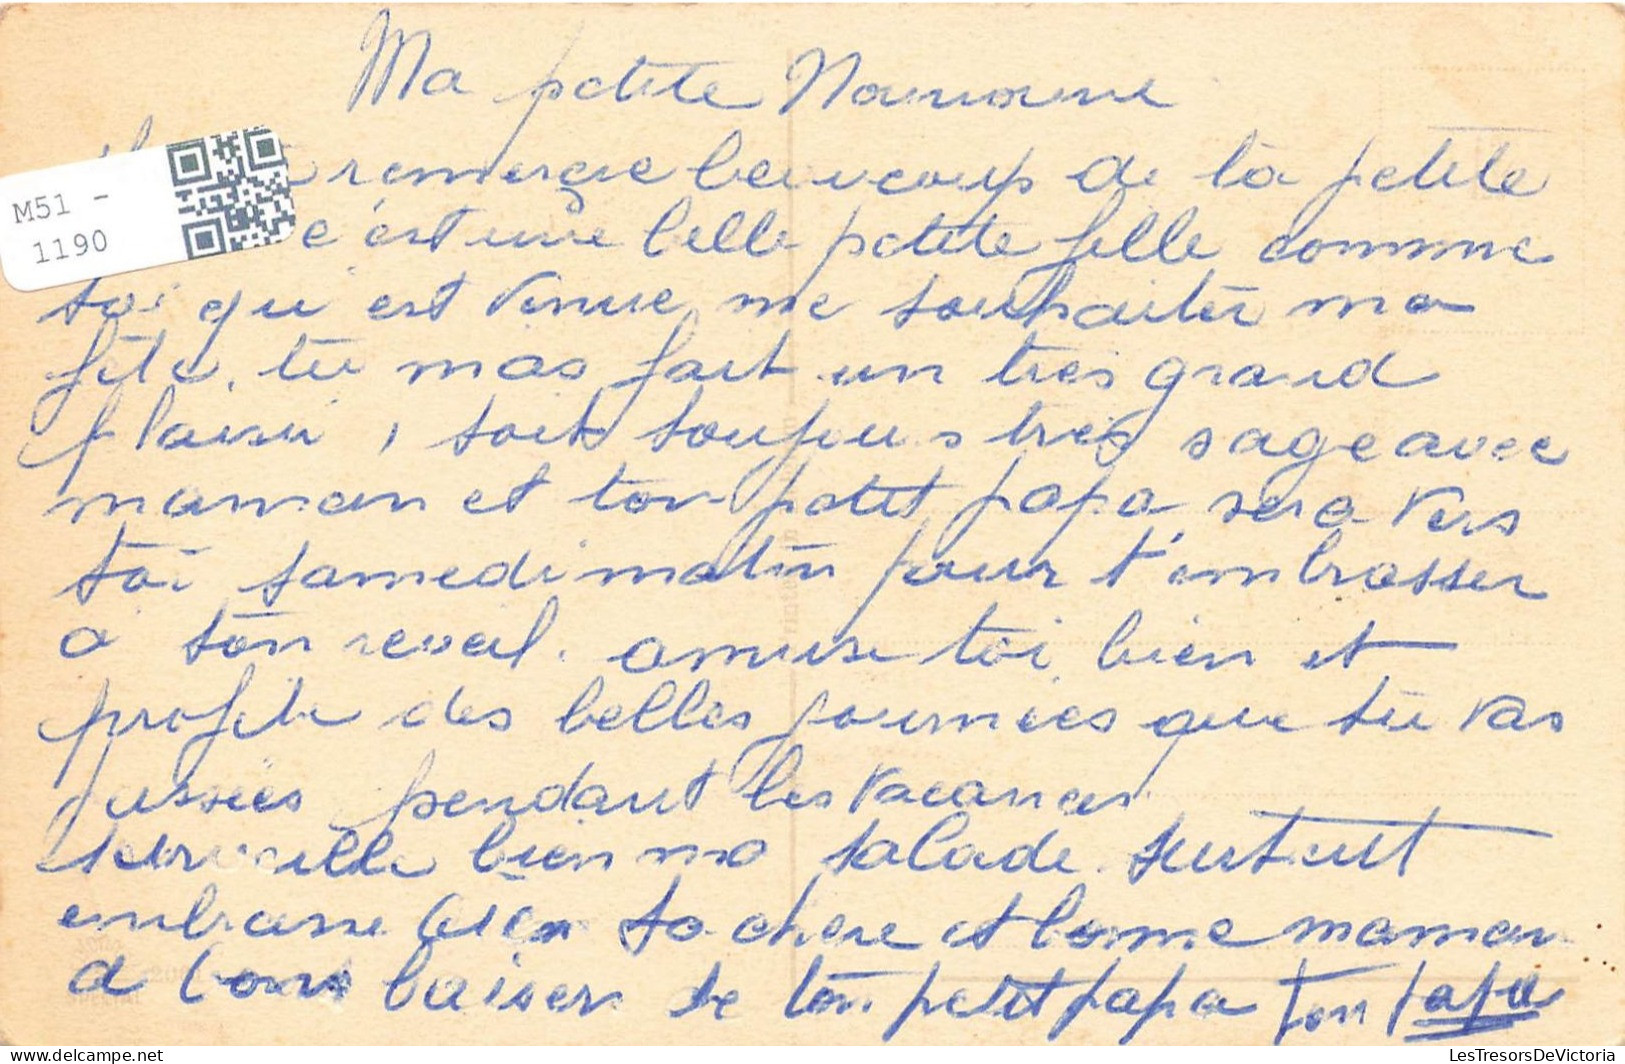 Ma petite Nounoune
remercie beaucoup de la petite
c'est une belle petite fille comme
toi qui est venue me souhaiter ma
fête, tu mas fait un très grand
plaisir, soit toujours très sage avec
maman et ton petit papa sera vers
toi samedi matin pour t'embrasser
a ton reveil. amuse toi bien et
profite des belles journées que tu vas
passées pendant les vacances
surveille bien ma salade. surtout
embrasse bien ta chere et bonne maman
a bons baisers de ton petit papa Ton papa
M51 -
1190
LesTresorsDeVictoria